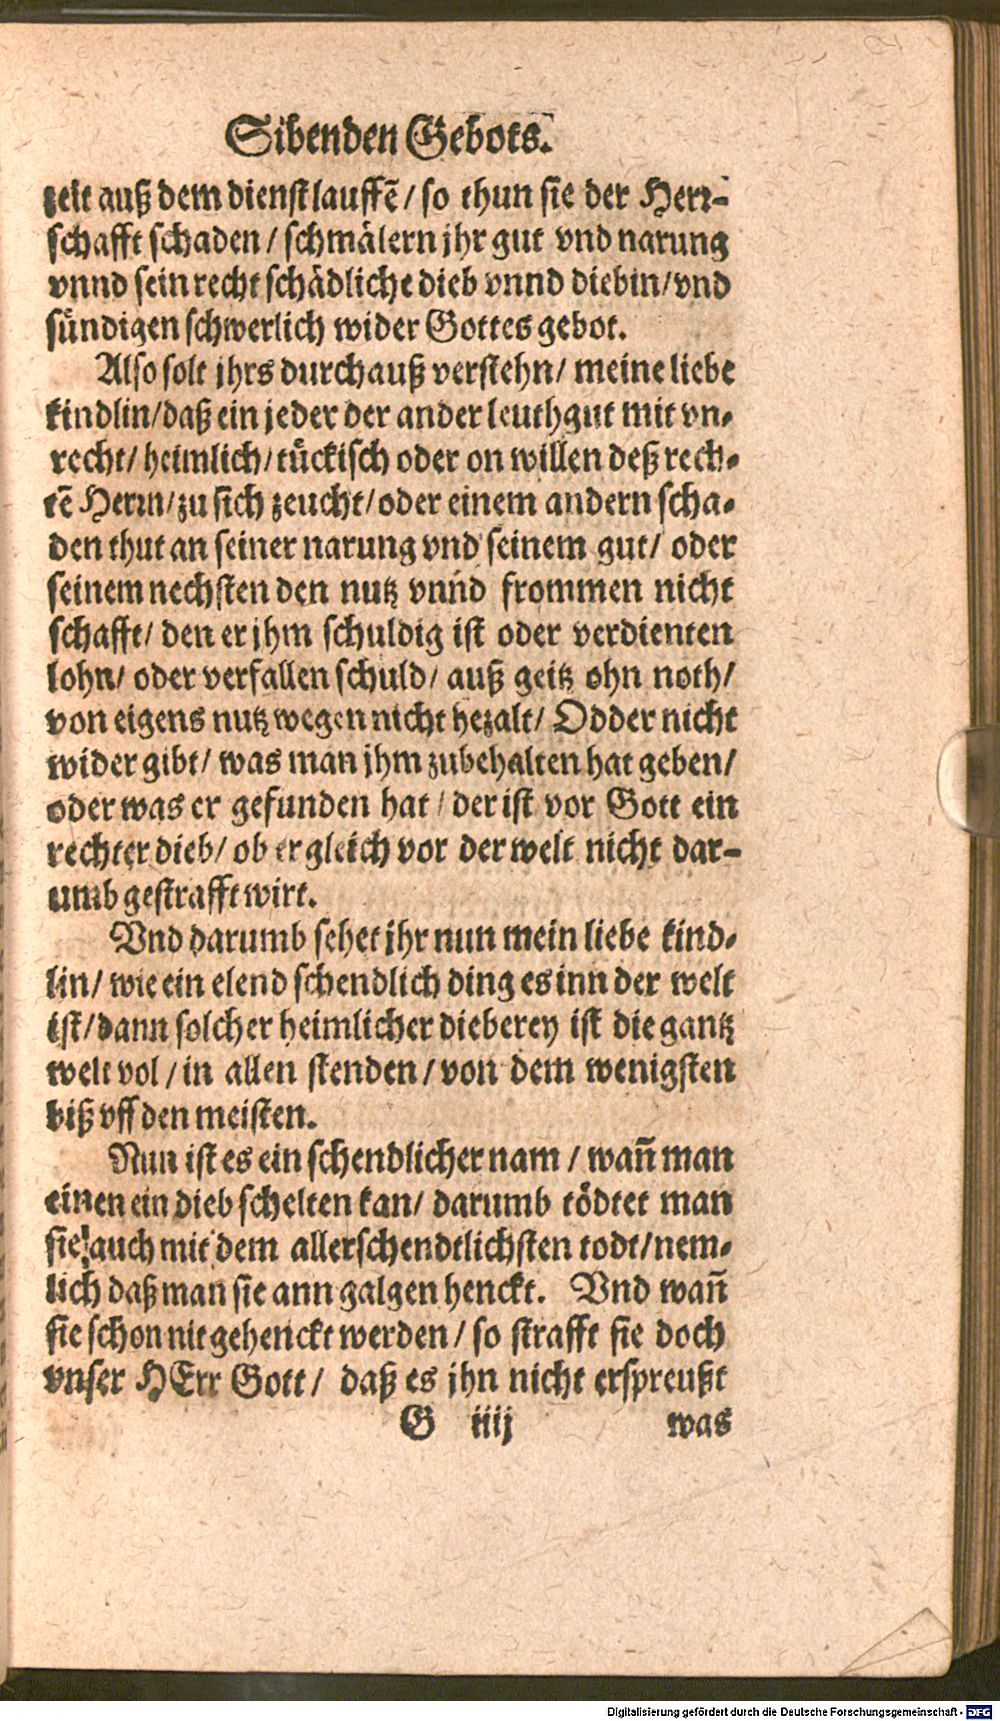 Sibenden Gebots.
zeit auß dem dienst lauffẽ / so thun sie der Herr-
schafft schaden / schmälern jhr gut vnd narung
vnnd sein recht schädliche dieb vnnd diebin / vnd
sündigen schwerlich wider Gottes gebot.
Also solt jhrs durchauß verstehn / meine liebe
kindlin / daß ein jeder der ander leuth gut mit vn-
recht / heimlich / tückisch oder on willen deß rech-
tẽ Herrn / zu sich zeucht / oder einem andern scha-
den thut an seiner narung vnd seinem gut / oder
seinem nechsten den nutz vnnd frommen nicht
schafft / den er jhm schuldig ist oder verdienten
lohn / oder verfallen schuld / auß geitz ohn noth /
von eigens nutz wegen nicht bezalt / Odder nicht
wider gibt / was man jhm zubehalten hat geben /
oder was er gefunden hat / der ist vor Gott ein
rechter dieb / ob er gleich vor der welt nicht dar-
umb gestrafft wirt.
Vnd darumb sehet jhr nun mein liebe kind-
lin / wie ein elend schendlich ding es inn der welt
ist / dann solcher heimlicher dieberey ist die gantz
welt vol / in allen stenden / von dem wenigsten
biß vff den meisten.
Nun ist es ein schendlicher nam / wañ man
einen ein dieb schelten kan / darumb tödtet man
sie auch mit dem allerschendtlichsten todt / nem-
lich daß man sie ann galgen henckt. Vnd wañ
sie schon nit gehenckt werden / so strafft sie doch
vnser HErr Gott / daß es jhn nicht erspreußt
G iiij was
Digitalisierung gefördert durch die Deutsche Forschungsgemeinschaft - DFG